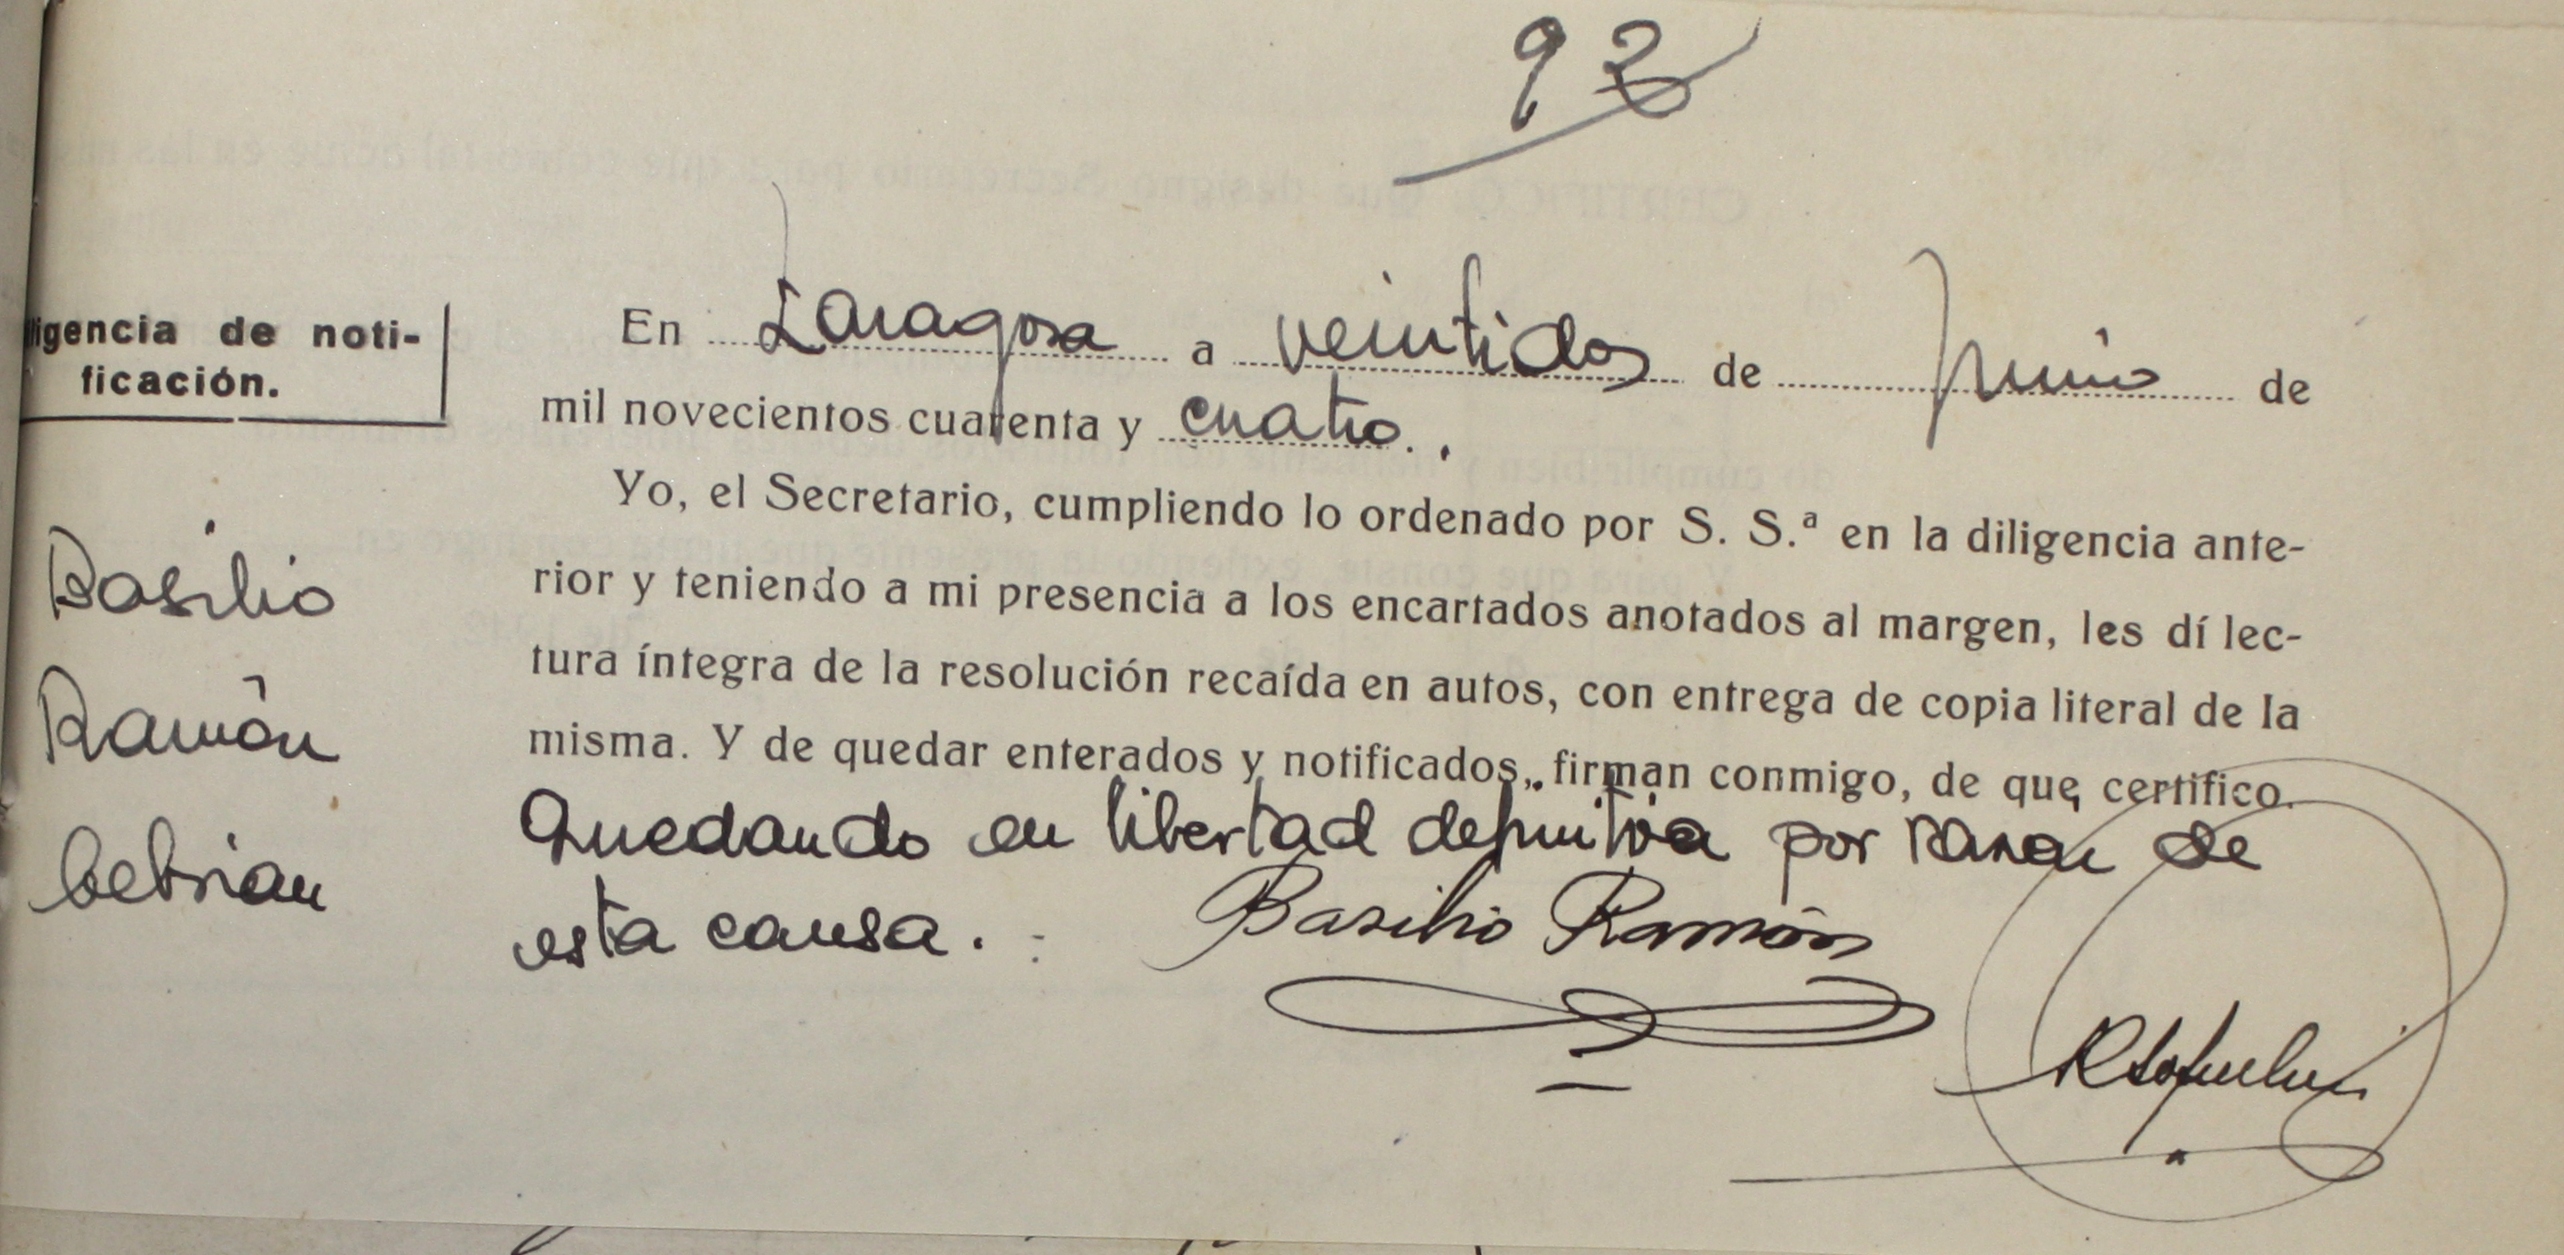 92
ligencia de noti-
ficación.
En Zaragoza a veintidos de Junio de
mil novecientos cuarenta y cuatro.
Yo, el Secretario, cumpliendo lo ordenado por S. S.ª en la diligencia ante-
rior y teniendo a mi presencia a los encartados anotados al margen, les dí lec-
tura íntegra de la resolución recaída en autos, con entrega de copia literal de la
misma. Y de quedar enterados y notificados, firman conmigo, de que certifico.
Quedando en libertad definitiva por razon de
esta causa.
Basilio
Ramón
Cebrian
Basilio Ramón